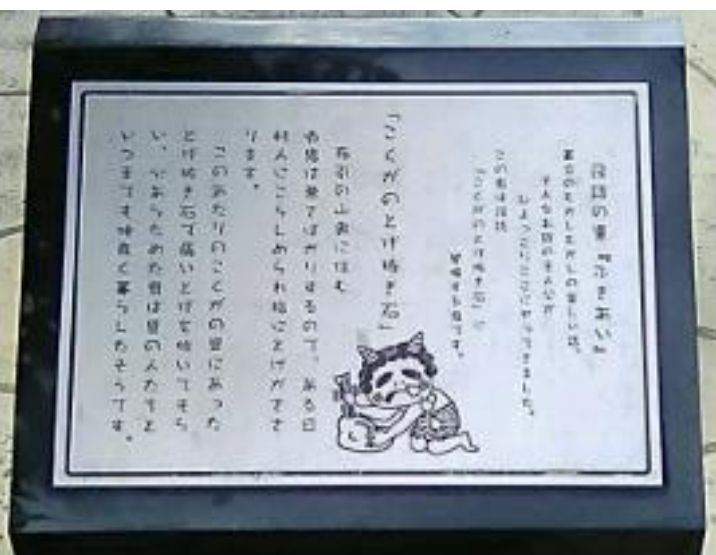 民話の里『ふきあい』
葺合のむかしむかしの楽しい話。
そんなお話の主人公が
ひょっこりここにやってきました。
この鬼は民話
「こくがのとげ抜き石」に
登場する鬼です。
「こくがのとげ抜き石」
布引の山奥に住む
赤鬼は悪さばかりするので、ある日
村人にこらしめられ指にとげがささ
ります。
このあたりのこくがの里にあった
とげ抜き石で痛いとげを抜いてもら
い、心あらためた鬼は里の人たちと
いつまでも仲良く暮らしたそうです。